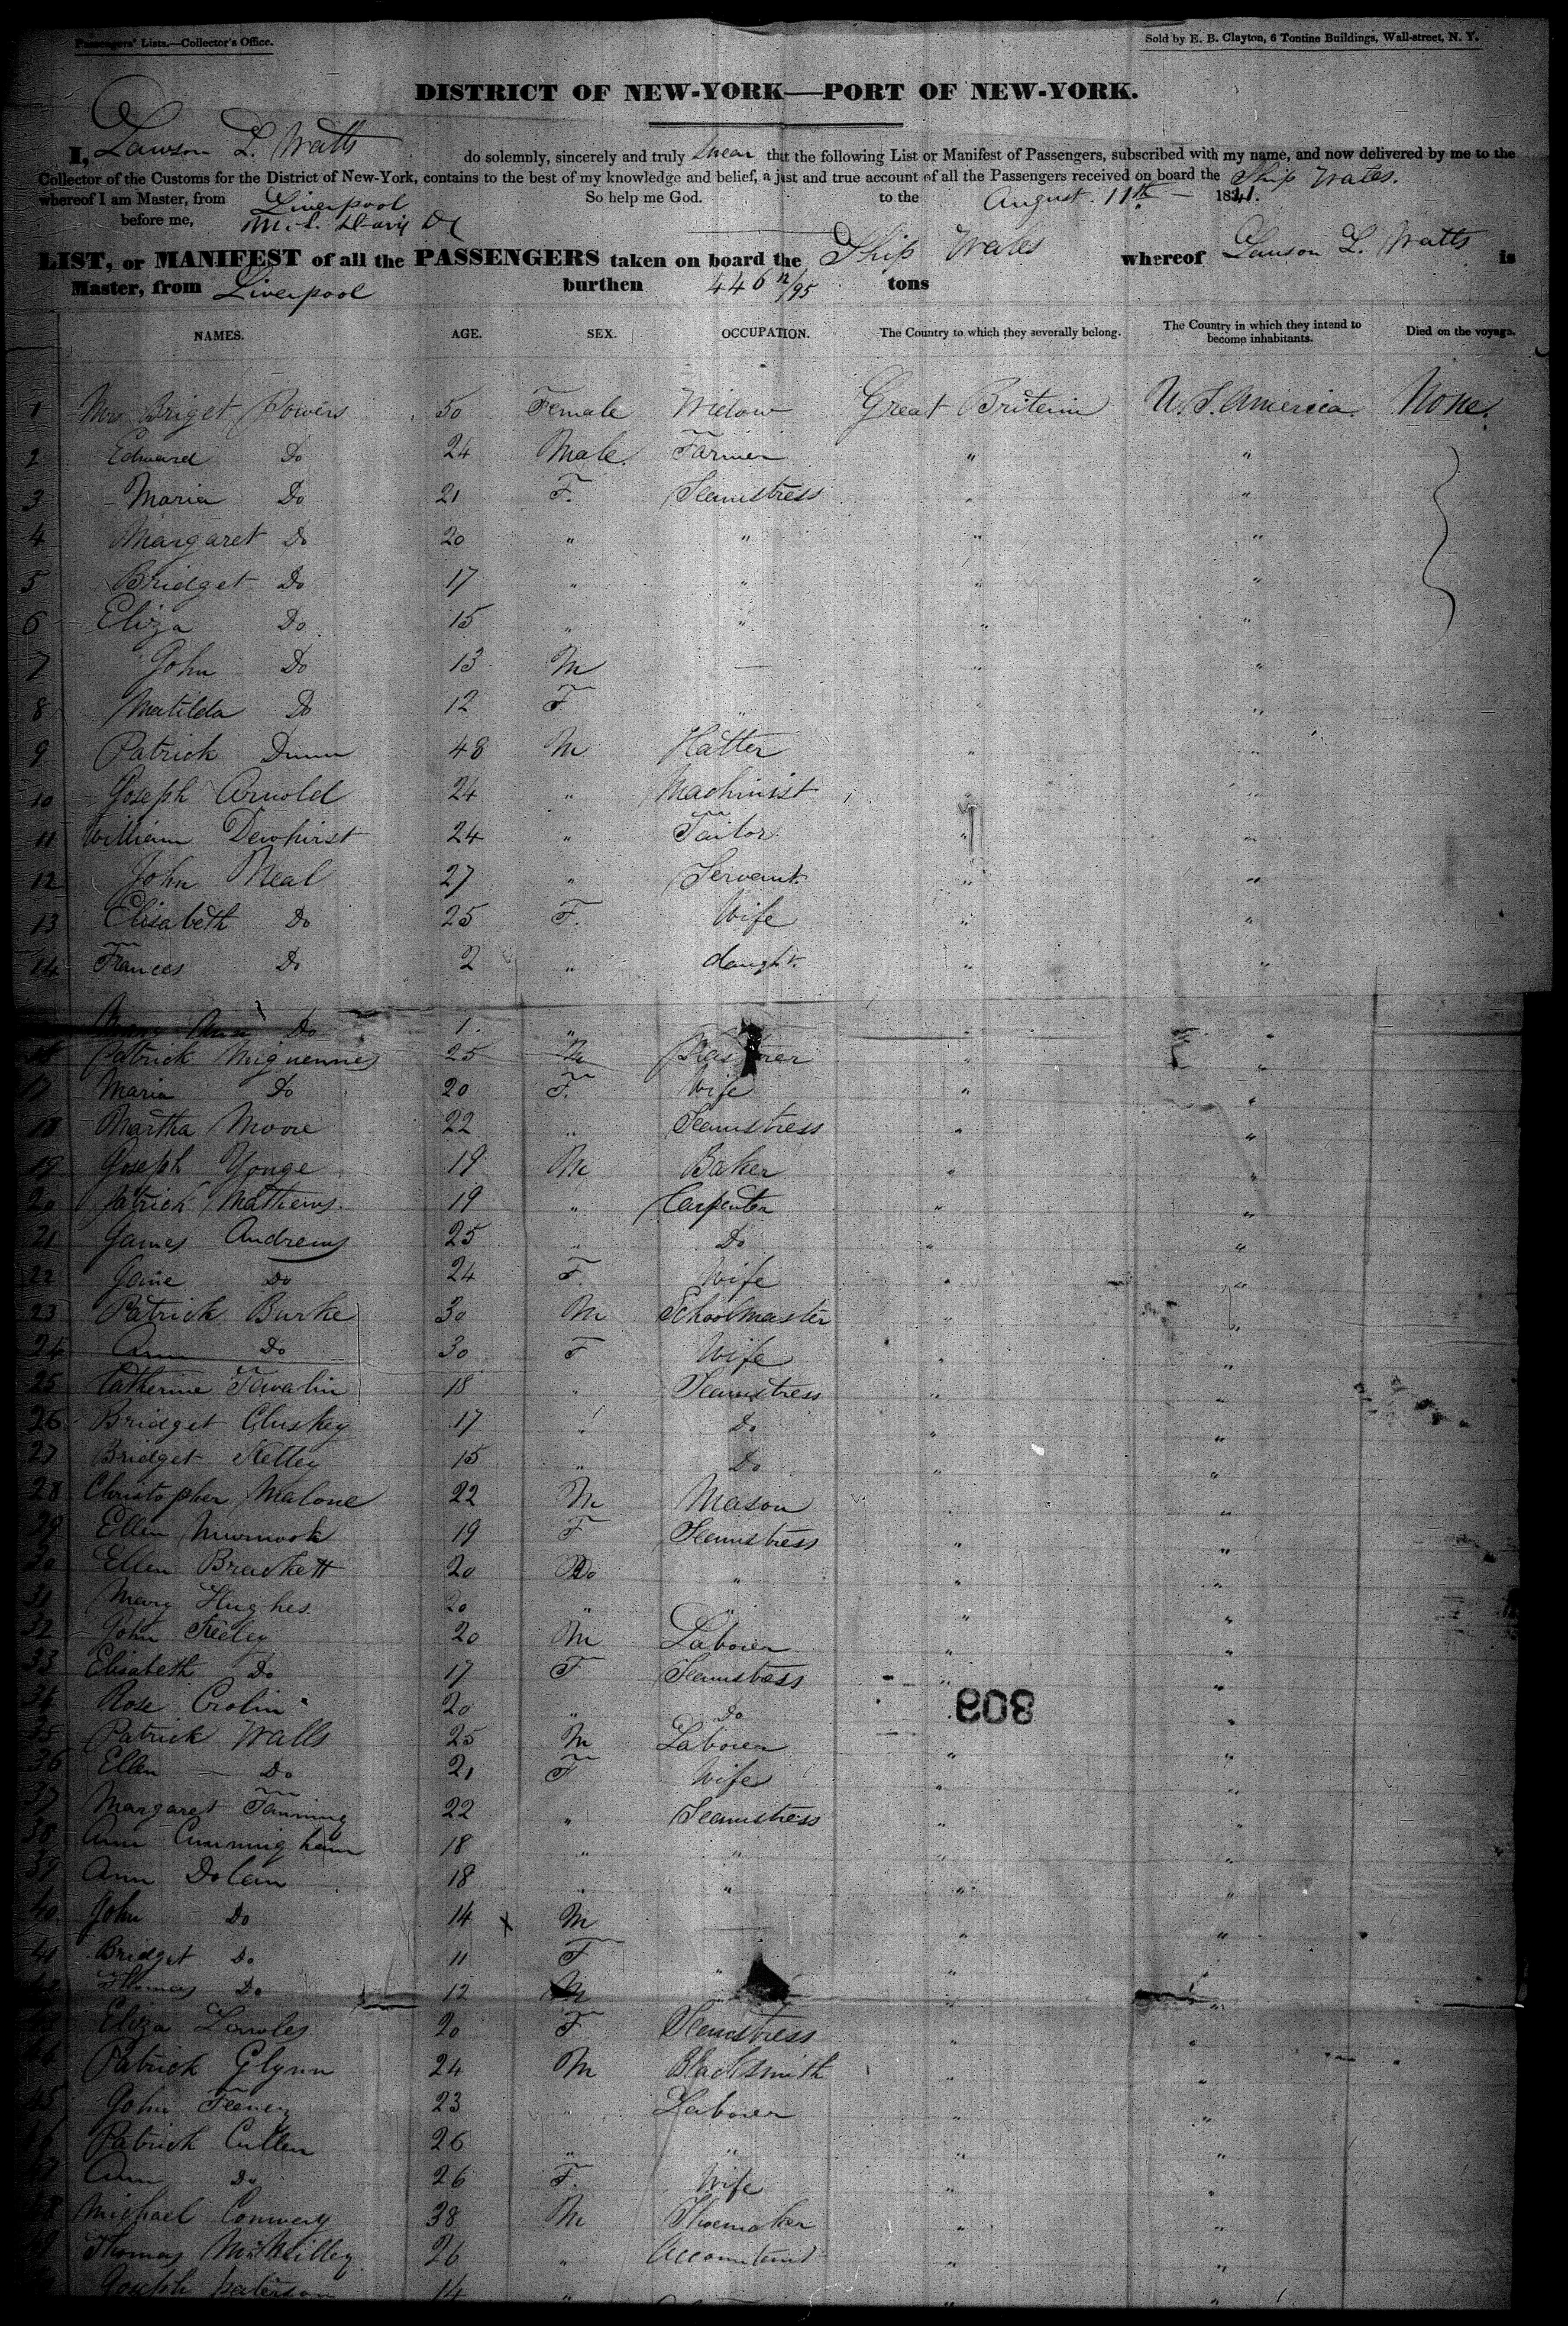 Passengers' Lists.—Collector's Office.
Sold by E. B. Clayton, 6 Tontine Buildings, Wall-street, N. Y.
DISTRICT OF NEW-YORK—PORT OF NEW-YORK.
I, Lawson L. Watts do solemnly, sincerely and truly swear that the following List or Manifest of Passengers, subscribed with my name, and now delivered by me to the
Collector of the Customs for the District of New-York, contains to the best of my knowledge and belief, a just and true account of all the Passengers received on board the Ship Wales.
whereof I am Master, from Liverpool So help me God. to the August 11th — 1841.
before me,
LIST, or MANIFEST of all the PASSENGERS taken on board the Ship Wales whereof Lawson L. Watts is
Master, from Liverpool burthen 446 /95 tons
NAMES. AGE. SEX. OCCUPATION. The Country to which they severally belong. The Country in which they intend to become inhabitants. Died on the voyage.
1 Mrs Briget Powers 50 Female Widow Great Britain U. S. America. None.
2 Edward Do 24 Male. Farmer " "
3 Maria Do 21 F. Seamstress " "
4 Margaret Do 20 " " " "
5 Bridget Do 17 " " " "
6 Eliza Do 15 " " " "
7 John Do 13 M — " "
8 Matilda Do 12 F " " "
9 Patrick Dunn 48 M Hatter " "
10 Joseph Arnold 24 " Machinist " "
11 William Dewhirst 24 " Tailor " "
12 John Neal 27 " Servant " "
13 Elisabeth Do 25 F. Wife " "
14 Frances Do 2 " daught. " "
Mary Ann Do 1. " " "
16 Patrick 25 M " "
17 Maria Do 20 F. Wife " "
18 Martha Moore 22 " Seamstress " "
19 Joseph Yonge 19 M Baker " "
20 Patrick Mathews. 19 " Carpenter " "
21 James Andrews 25 " Do " "
22 Jane Do 24 F. Wife " "
23 Patrick Burke 30 M Schoolmaster " "
24 Ann Do 30 F Wife " "
25 Catherine 18 " Seamstress " "
26 Bridget Cluskey 17 " Do " "
27 Bridget Kelley 15 " Do " "
28 Christopher Malone 22 M Mason " "
29 Ellen 19 F Seamstress " "
30 Ellen Brackett 20 Do " " "
31 Mary Hughes 20 " " " "
32 John Keeley 20 M Laborer " "
33 Elisabeth Do 17 F Seamstress " "
34 Rose Crolin 20 " Do " "
35 Patrick Walls 25 M Laborer " "
36 Ellen Do 21 F Wife " "
37 Margaret Fanning 22 " Seamstress " "
38 Ann Cunningham 18 " " " "
39 Ann Dolan 18 " " " "
40 John Do 14 x M " "
41 Bridget Do 11 F " " "
42 Thomas Do 12 M " " "
Eliza Lawles 20 F Seamstress " "
44 Patrick Glynn 24 M Blacksmith " "
45 John Feeney 23 " Laborer " "
46 Patrick Cullen 26 " " " "
47 Ann Do 26 F. Wife " "
48 Michael Conway 38 M Shoemaker " "
49 Thomas 26 " Accountant " "
Joseph Paterson 14 " " "
809